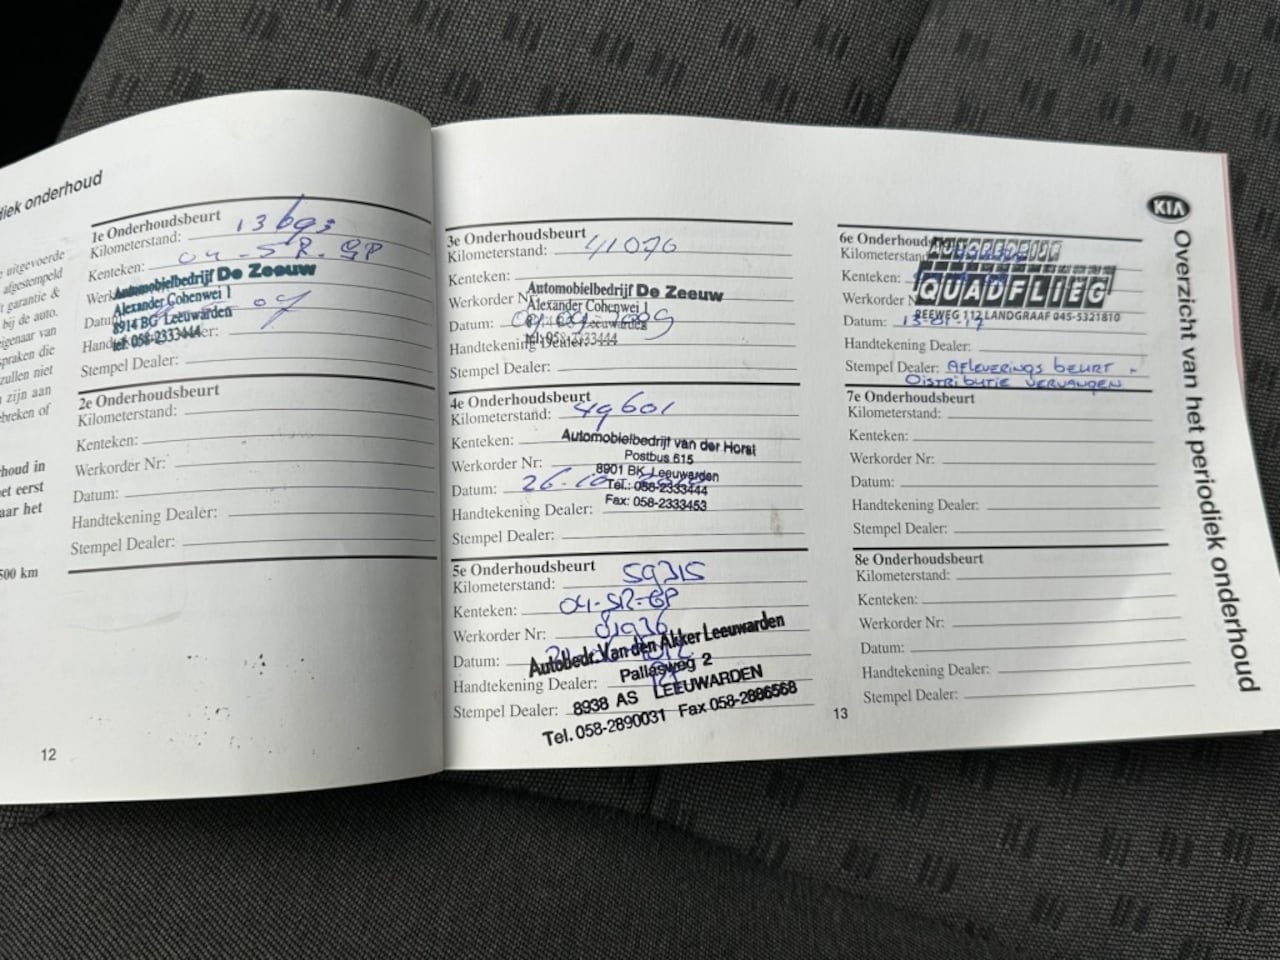 diek onderhoud
uitgevoerde
afgestempeld
garantie &
bij de auto.
eigenaar van
spraken die
zullen niet
n zijn aan
breken of
houd in
et eerst
aar het
500 km
1e Onderhoudsbeurt
Kilometerstand: 13693
Kenteken: 04-SR-GP
Automobielbedrijf De Zeeuw
Alexander Cohenwei 1
8914 BG Leeuwarden
tel: 058-2333444
Stempel Dealer:
2e Onderhoudsbeurt
Kilometerstand:
Kenteken:
Werkorder Nr:
Datum:
Handtekening Dealer:
Stempel Dealer:
12
3e Onderhoudsbeurt
Kilometerstand: 41070
Kenteken:
Werkorder Nr
Automobielbedrijf De Zeeuw
Alexander Cohenwei 1
Leeuwarden
tel: 058-2333444
Datum:
Handtekening Dealer:
Stempel Dealer:
4e Onderhoudsbeurt
Kilometerstand: 49601
Kenteken:
Werkorder Nr:
Automobielbedrijt van der Horst
Postbus 615
8901 BK Leeuwarden
Tel.: 058-2333444
Fax: 058-2333453
Datum: 26-10
Handtekening Dealer:
Stempel Dealer:
5e Onderhoudsbeurt
Kilometerstand: 59315
Kenteken: 04-SR-GP
Werkorder Nr: 81936
Datum:
Handtekening Dealer:
Stempel Dealer:
Autobedr. Van den Akker Leeuwarden
Pallasweg 2
8938 AS LEEUWARDEN
Tel. 058-2890031 Fax 058-2886568
6e Onderhouds
Kilometerstand
Kenteken:
Werkorder N
AUTOBEDRIJF
QUADFLIEG
REEWEG 112 LANDGRAAF 045-5321810
Datum: 13-01-17
Handtekening Dealer:
Stempel Dealer: Afleverings beurt +
Distributie vervangen
7e Onderhoudsbeurt
Kilometerstand:
Kenteken:
Werkorder Nr:
Datum:
Handtekening Dealer:
Stempel Dealer:
8e Onderhoudsbeurt
Kilometerstand:
Kenteken:
Werkorder Nr:
Datum:
Handtekening Dealer:
Stempel Dealer:
13
KIA
Overzicht van het periodiek onderhoud